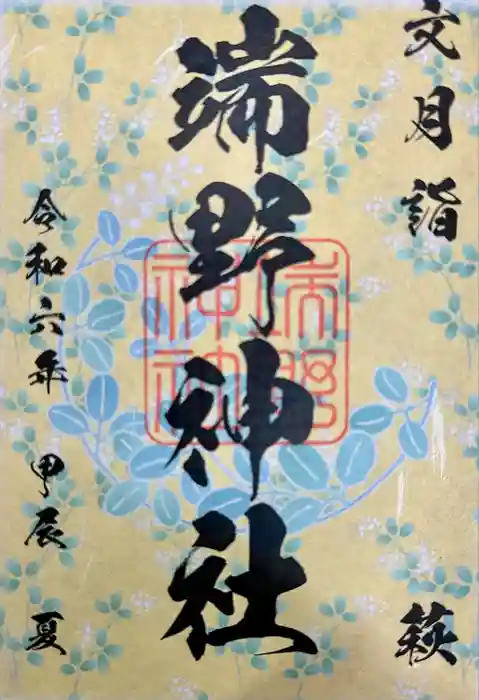 文月詣 萩
端野神社
令和六年 甲辰 夏
端野
神社